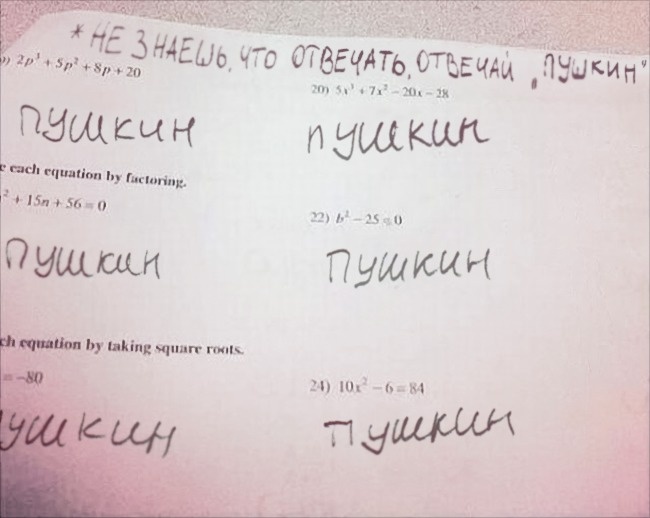 * НЕ ЗНАЕШЬ, ЧТО ОТВЕЧАТЬ, ОТВЕЧАЙ „ПУШКИН“
9) 2p³ + 5p² + 8p + 20
20) 5x³ + 7x² − 20x − 28
ПУШКИН
ПУШКИН
e each equation by factoring.
² + 15n + 56 = 0
22) b² − 25 = 0
ПУШКИН
ПУШКИН
ch equation by taking square roots.
= −80
24) 10x² − 6 = 84
УШКИН
ПУШКИН